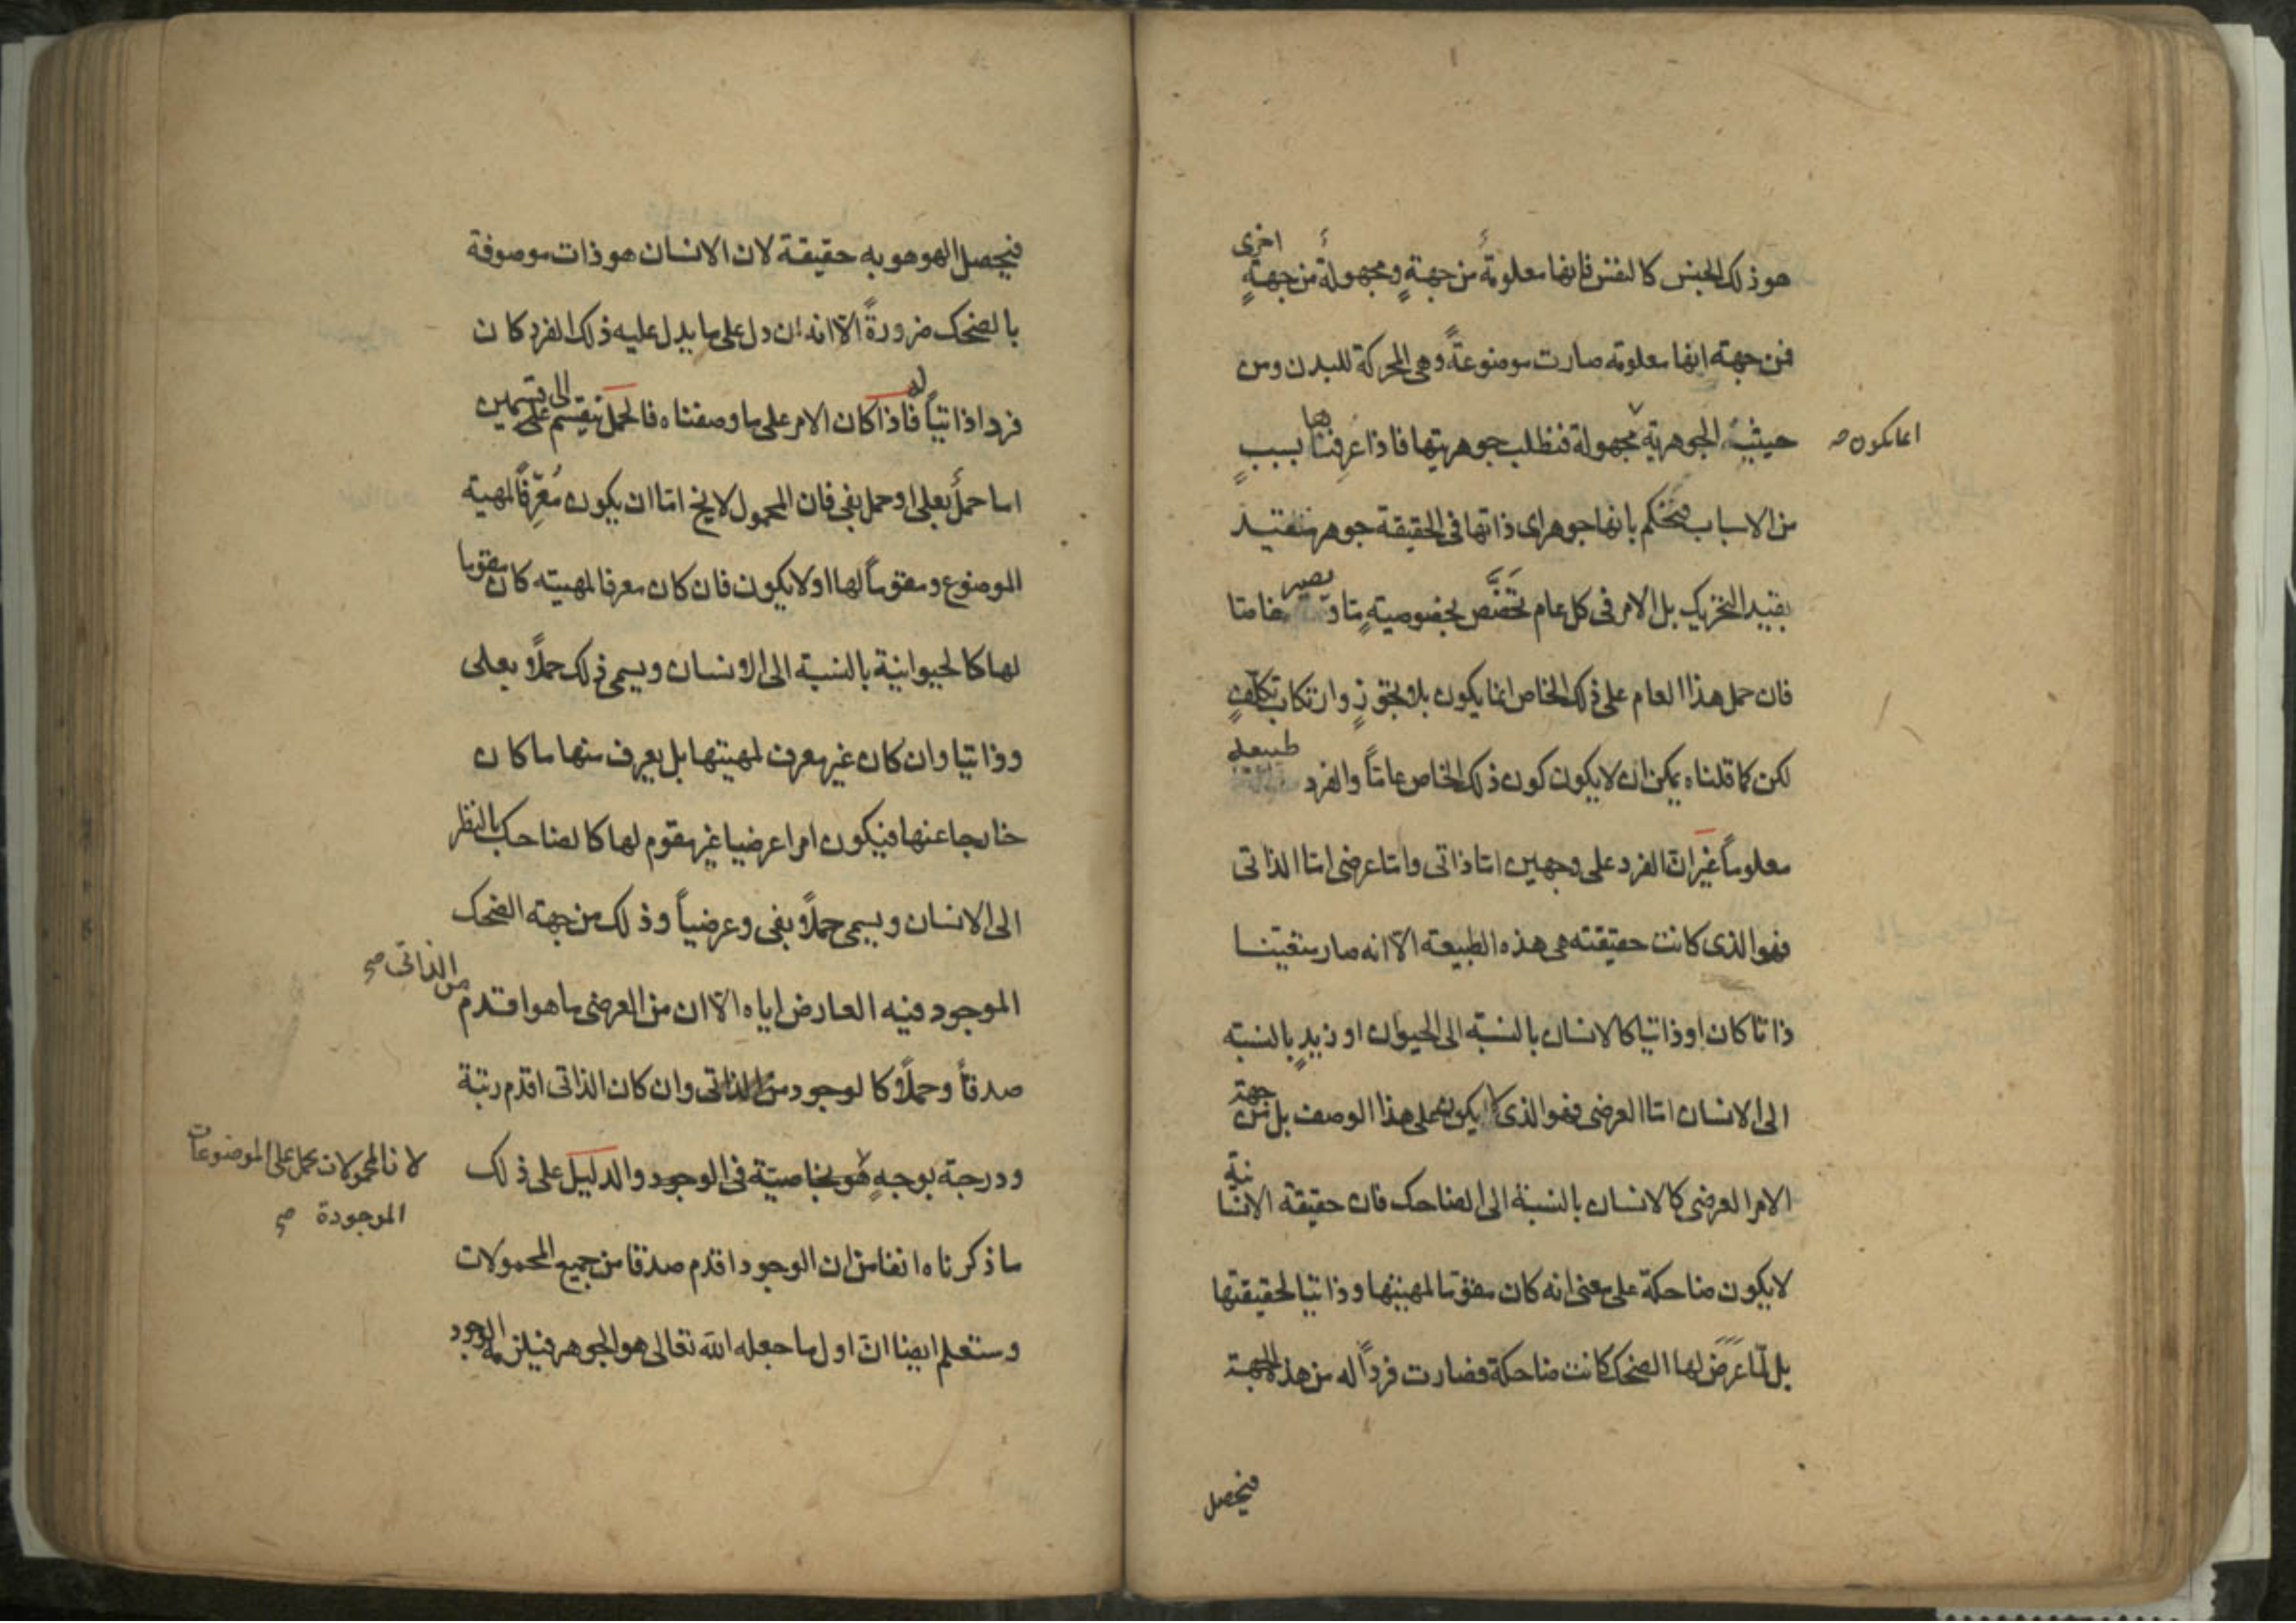 هو ذلك الجنس كالنفس فإنها معلومةٌ من جهةٍ ومجهولةٌ من جهةٍ اخرى
فمن جهة انها معلومة صارت موضوعةً وهى المحركة للبدن ومن
حيثية الجوهرية مجهولة فنطلب جوهريتها فاذا عرفناها بسببٍ
انما يكون صح
من الاسباب فنحكم بانها جوهر اى ذاتها فى الحقيقة جوهر متقيد
بقيد التحريك بل الامر فى كل عام تخصَّص بخصوصيةٍ ما و يصير خاصا
فان حمل هذا العام على ذلك الخاص انما يكون بلا تجوّزٍ وارتكاب تكلّفٍ
لكن كما قلناه يمكن ان لا يكون كون ذلك الخاص عاماً والفرد طبيعة
معلوماً غير ان الفرد على وجهين اما ذاتى واما عرضى اما الذاتى
فهو الذى كانت حقيقته هى هذه الطبيعة الا انه صار متعينا
ذاتا كان او ذاتيا كالانسان بالنسبة الى الحيوان او زيدٍ بالنسبة
الى الانسان اما العرضى فهو الذى لا يكون على هذا الوصف بل من جهة
الامر العرضى كالانسان بالنسبة الى الضاحك فان حقيقة الانسانية
لا يكون ضاحكة على معنى انه كان مقوما لمهيتها وذاتيا لحقيقتها
بل لمّا عَرَضَ لها الضحك كانت ضاحكة فصارت فرداً له من هذه الجهة
فيحصل
فيحصل الهوهوبه حقيقة لان الانسان هو ذات موصوفة
بالضحك ضرورةً الا انه ان دل على ما يدل عليه ذلك الفرد كان
فردا ذاتياً له فاذا كان الامر على ما وصفناه فالحمل ينقسم على الى قسمين
اما حملٌ بعلى او حمل بفى فان المحمول لا يخ اما ان يكون مُعرِّفاً لمهية
الموضوع ومقوماً لها او لا يكون فان كان معرفا لمهيته كان مقوما
لها كالحيوانية بالنسبة الى الانسان ويسمى ذلك حملاً بعلى
وذاتيا وان كان غير معرف لمهيتها بل يعرف منها ما كان
خارجا عنها فيكون امرا عرضيا غير مقوم لها كالضاحك بالنظر
الى الانسان ويسمى حملاً بفى وعرضياً وذلك من جهة الضحك
الموجود فيه العارض اياه الا ان من العرضى ما هو اقدم
من الذاتى صح
صدقاً وحملاً كالوجود من الذاتى وان كان الذاتى اقدم رتبة
ودرجة بوجهٍ هو بخاصيّة فى الوجود والدليل على ذلك
لان المحمولات يحمل على الموضوعات
الموجودة صح
ما ذكرناه انفا من ان الوجود اقدم صدقا من جميع المحمولات
وستعلم ايضا ان اول ما جعله الله تعالى هو الجوهر فيلزمه الوجود